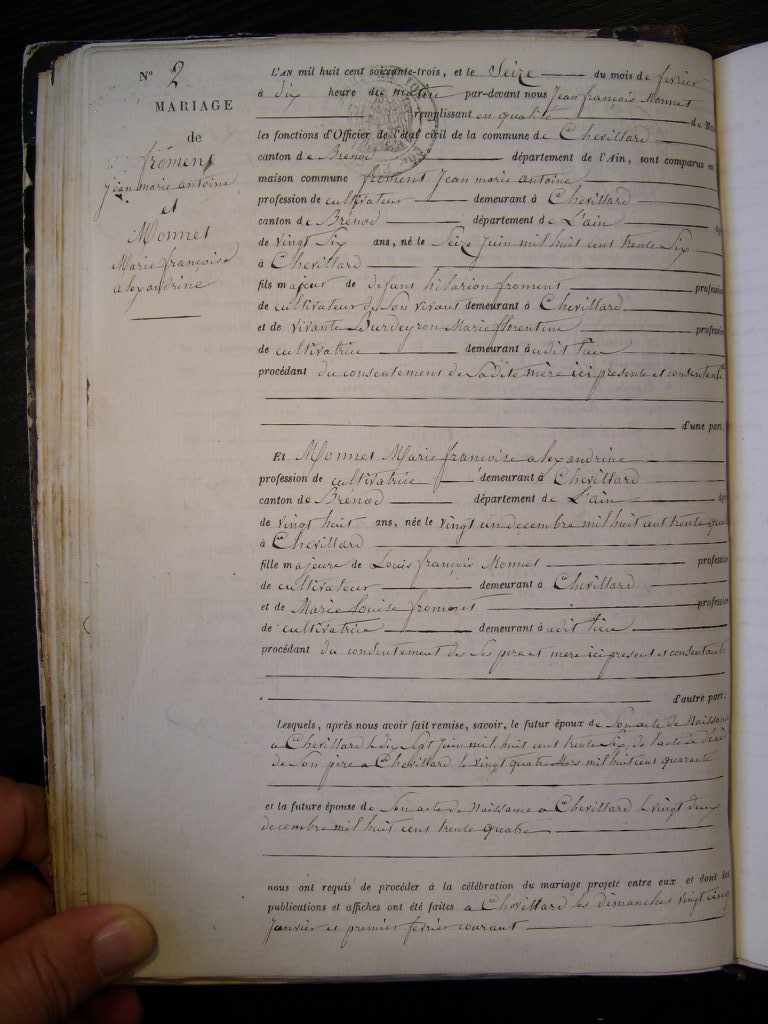 N° 2
MARIAGE
de
froment
Jean marie antoine
et
Monnet
Marie françoise
alexandrine
L'AN mil huit cent soixante-trois, et le Seize du mois de fevrier
à dix heure du matin par-devant nous Jean françois Monnet
remplissant en qualité de
les fonctions d'Officier de l'état civil de la commune de Chevillard
canton de Brénod département de l'Ain, sont comparus en
maison commune froment Jean marie antoine
profession de cultivateur demeurant à Chevillard
canton de Brénod département de L'ain
de vingt Six ans, né le Seize Juin mil huit cent trente Six
à Chevillard
fils majeur de defunt hilarion froment profession
de cultivateur de Son vivant demeurant à Chevillard
et de vivante Burdeyron Marie florentine profession
de cultivatrice demeurant à udit lieu
procédant du consentement de Sadite mère ici presente et consentante
d'une part,
Et Monnet Marie françoise alexandrine
profession de cultivatrice demeurant à Chevillard
canton de Brénod département de L'ain
de vingt huit ans, née le vingt un decembre mil huit cent trente
à Chevillard
fille majeure de Louis françois Monnet profession
de cultivateur demeurant a Chevillard
et de Marie Louise froment profession
de cultivatrice demeurant à udit lieu
procédant du consentement de Ses pere et mere ici present et consentants
d'autre part,
Lesquels, après nous avoir fait remise, savoir, le futur époux de Son acte de Naissance
a Chevillard le dix Sept Juin mil huit cent trente Six de l'acte de décè
de Son père a Chevillard le vingt quatre Mars mil huit cent quarante
et la future épouse de Son acte de Naissance a Chevillard le vingt deux
decembre mil huit cent trente quatre
nous ont requis de procéder à la célébration du mariage projeté entre eux et dont les
publications et affiches ont été faites a Chevillard les dimanches vingt cinq
Janvier et premier fevrier courant